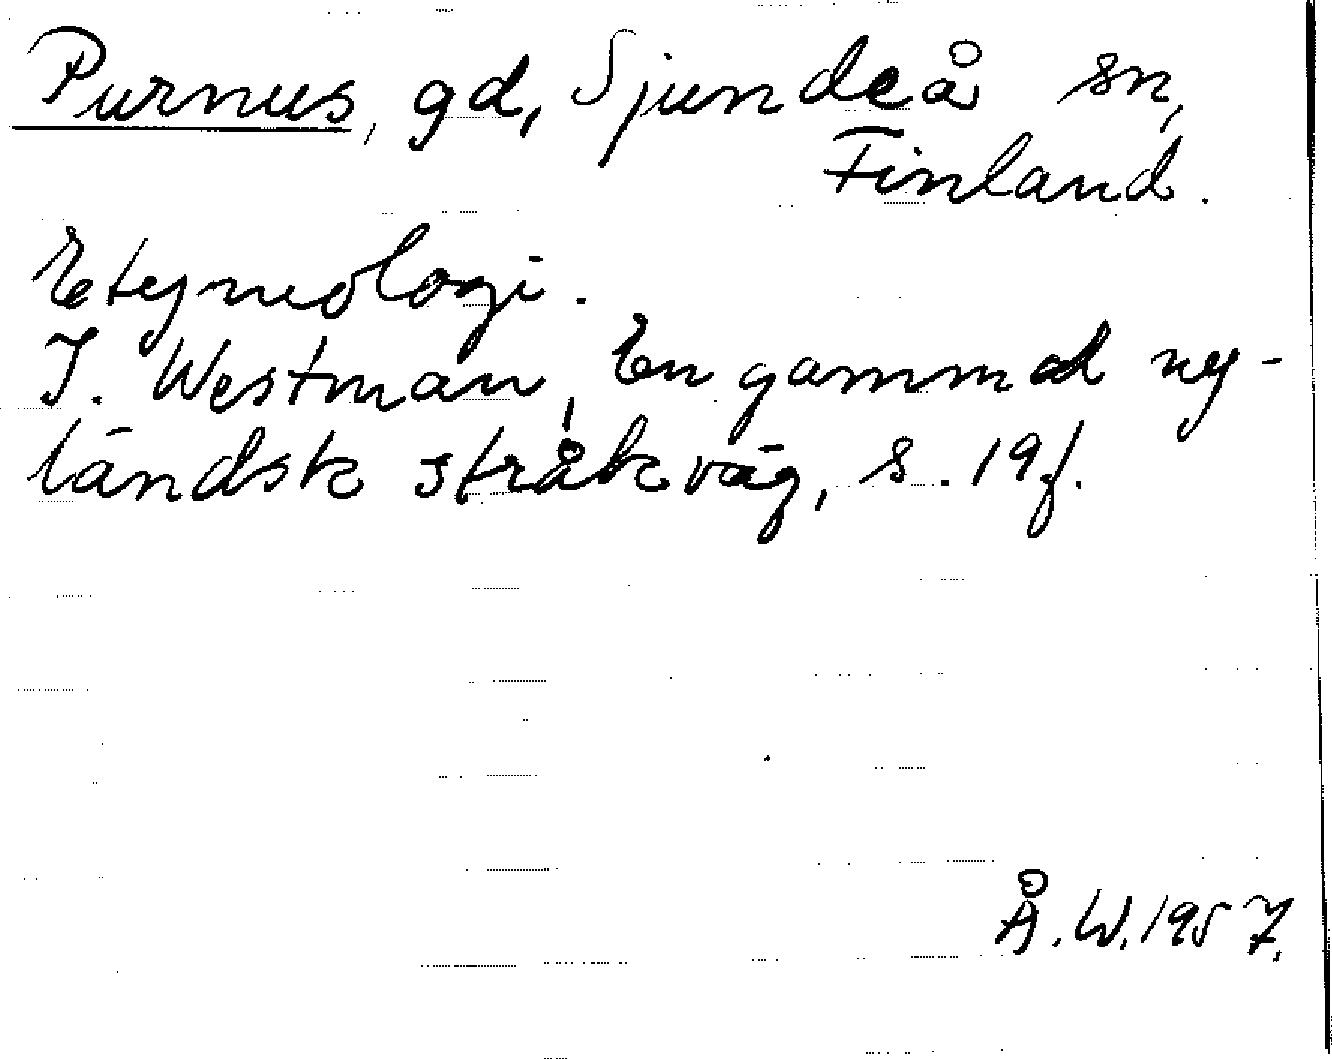 Purnus, gd, Sjundeå sn,
Finland.
Etymologi.
I. Westman, En gammal ny-
ländsk stråkväg, s. 19f.
Å.W. 1957.